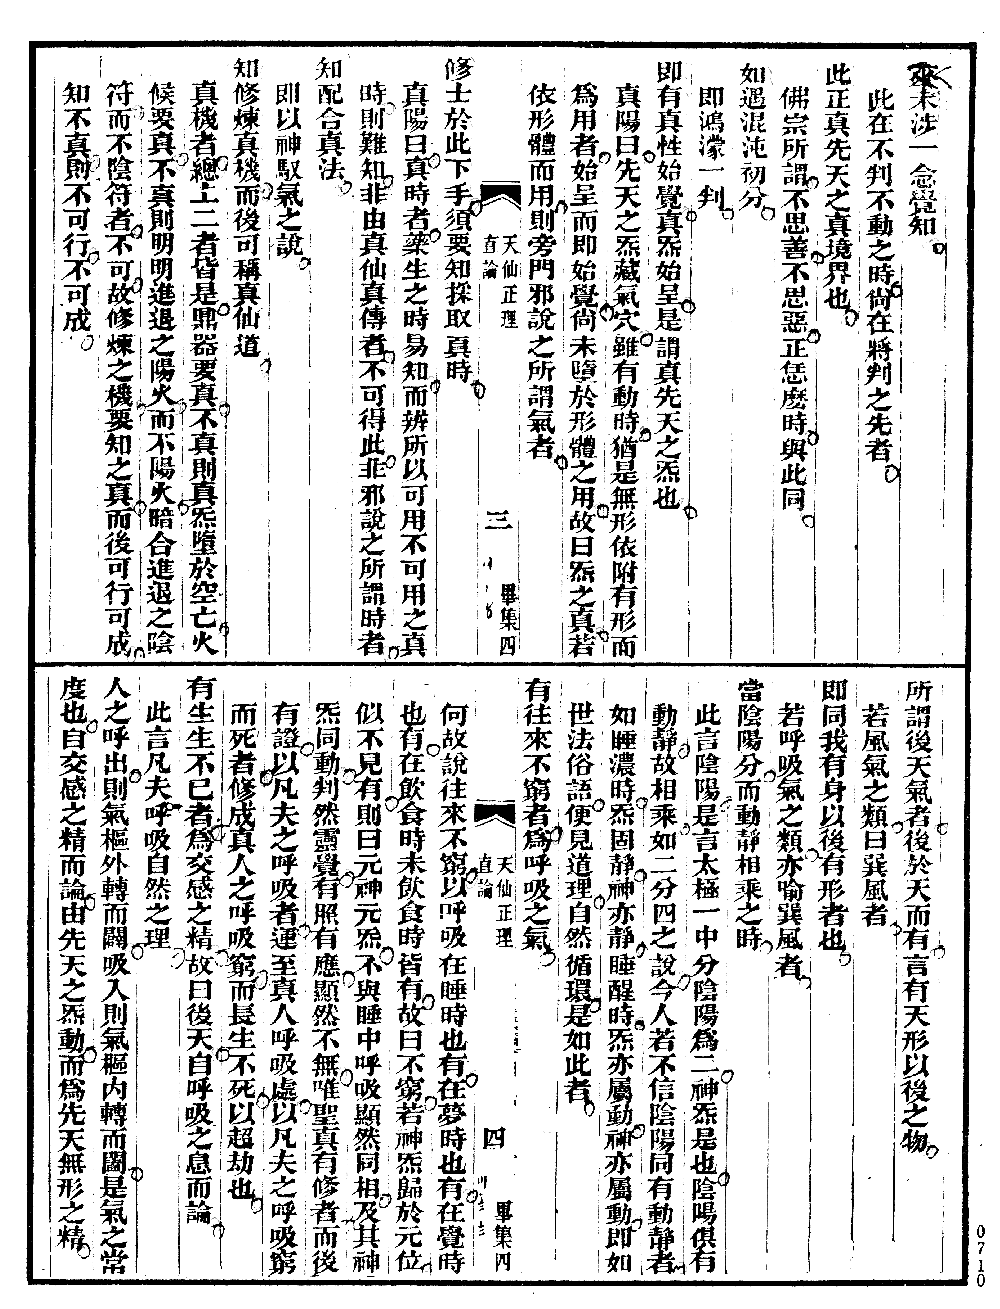 來未涉一念覺知
此在不判不動之時尚在將判之先者
此正真先天之真境界也
佛宗所謂不思善不思惡正恁麼時與此同
如遇混沌初分
即鴻濛一判
即有真性始覺真炁始呈是謂真先天之炁也
真陽曰先天之炁藏氣穴雖有動時猶是無形依附有形而
為用者始呈而即始覺尚未墮於形體之用故曰炁之真若
依形體而用則旁門邪說之所謂氣者
天仙正理
直論
三
畢集四
修士於此下手須要知採取真時
真陽曰真時者藥生之時易知而辨所以可用不可用之真
時則難知非由真仙真傳者不可得此非邪說之所謂時者
知配合真法
即以神馭氣之說
知修煉真機而後可稱真仙道
真機者總上二者皆是鼎器要真不真則真炁墮於空亡火
候要真不真則明明進退之陽火而不陽火暗合進退之陰
符而不陰符者不可故修煉之機要知之真而後可行可成
知不真則不可行不可成
所謂後天氣者後於天而有言有天形以後之物
若風氣之類曰巽風者
即同我有身以後有形者也
若呼吸氣之類亦喻巽風者
當陰陽分而動靜相乘之時
此言陰陽是言太極一中分陰陽為二神炁是也陰陽俱有
動靜故相乘如二分四之說今人若不信陰陽同有動靜者
如睡濃時炁固靜神亦靜睡醒時炁亦屬動神亦屬動即如
世法俗語便見道理自然循環是如此者
有往來不窮者為呼吸之氣
天仙正理
直論
四
畢集四
何故說往來不窮以呼吸在睡時也有在夢時也有在覺時
也有在飲食時未飲食時皆有故曰不窮若神炁歸於元位
似不見有則曰元神元炁不與睡中呼吸顯然同相及其神
炁同動判然靈覺有照有應顯然不無唯聖真有修者而後
有證以凡夫之呼吸者運至真人呼吸處以凡夫之呼吸窮
而死者修成真人之呼吸窮而長生不死以超劫也
有生生不已者為交感之精故曰後天自呼吸之息而論
此言凡夫呼吸自然之理
人之呼出則氣樞外轉而闢吸入則氣樞內轉而闔是氣之當
度也自交感之精而論由先天之炁動而為先天無形之精
0710